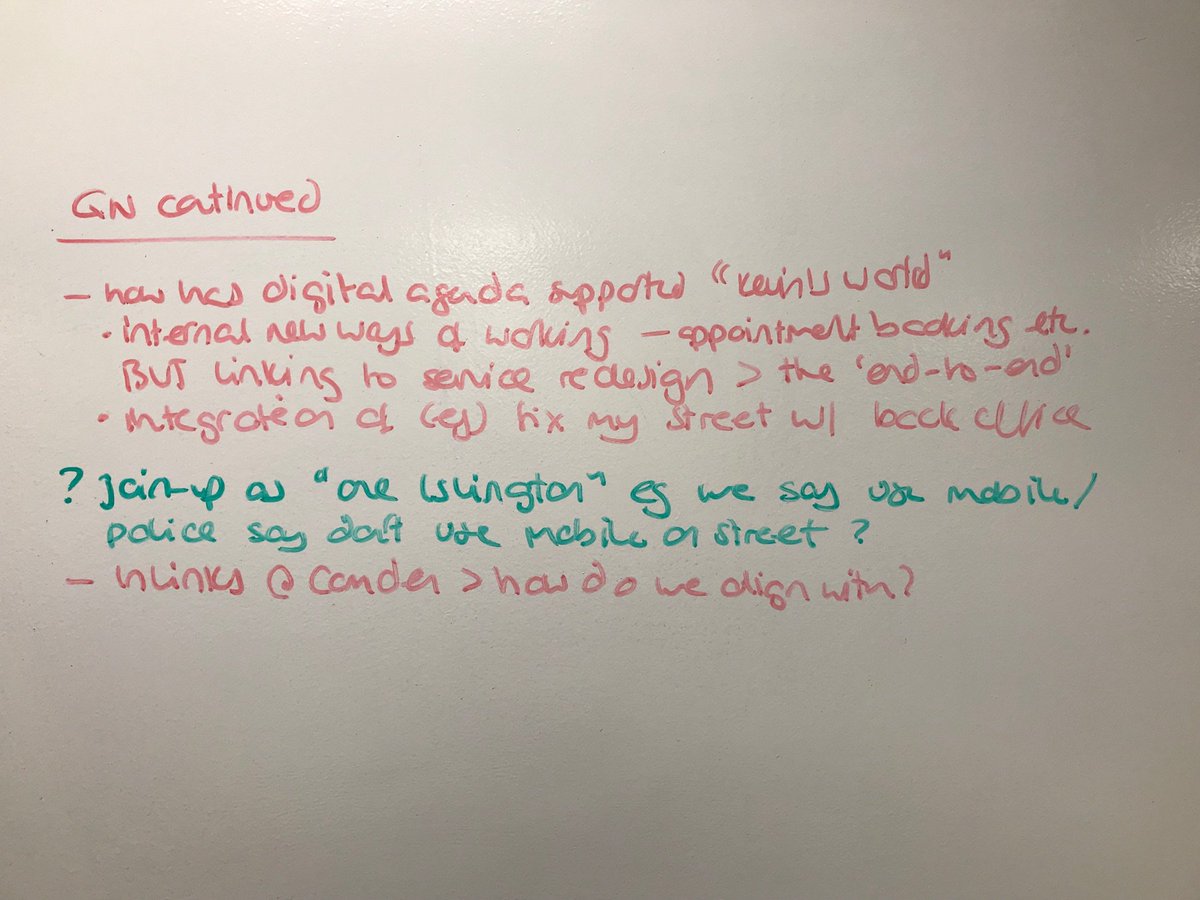 GN continued
- how has digital agenda supported "Kevin's world"
• internal new ways of working - appointment booking etc.
BUT linking to service redesign > the 'end-to-end'
• integration of (eg) fix my street w/ back office
? join-up as "one Islington" eg we say use mobile/
police say don't use mobile on street ?
- InLinks @ Camden > how do we align with?